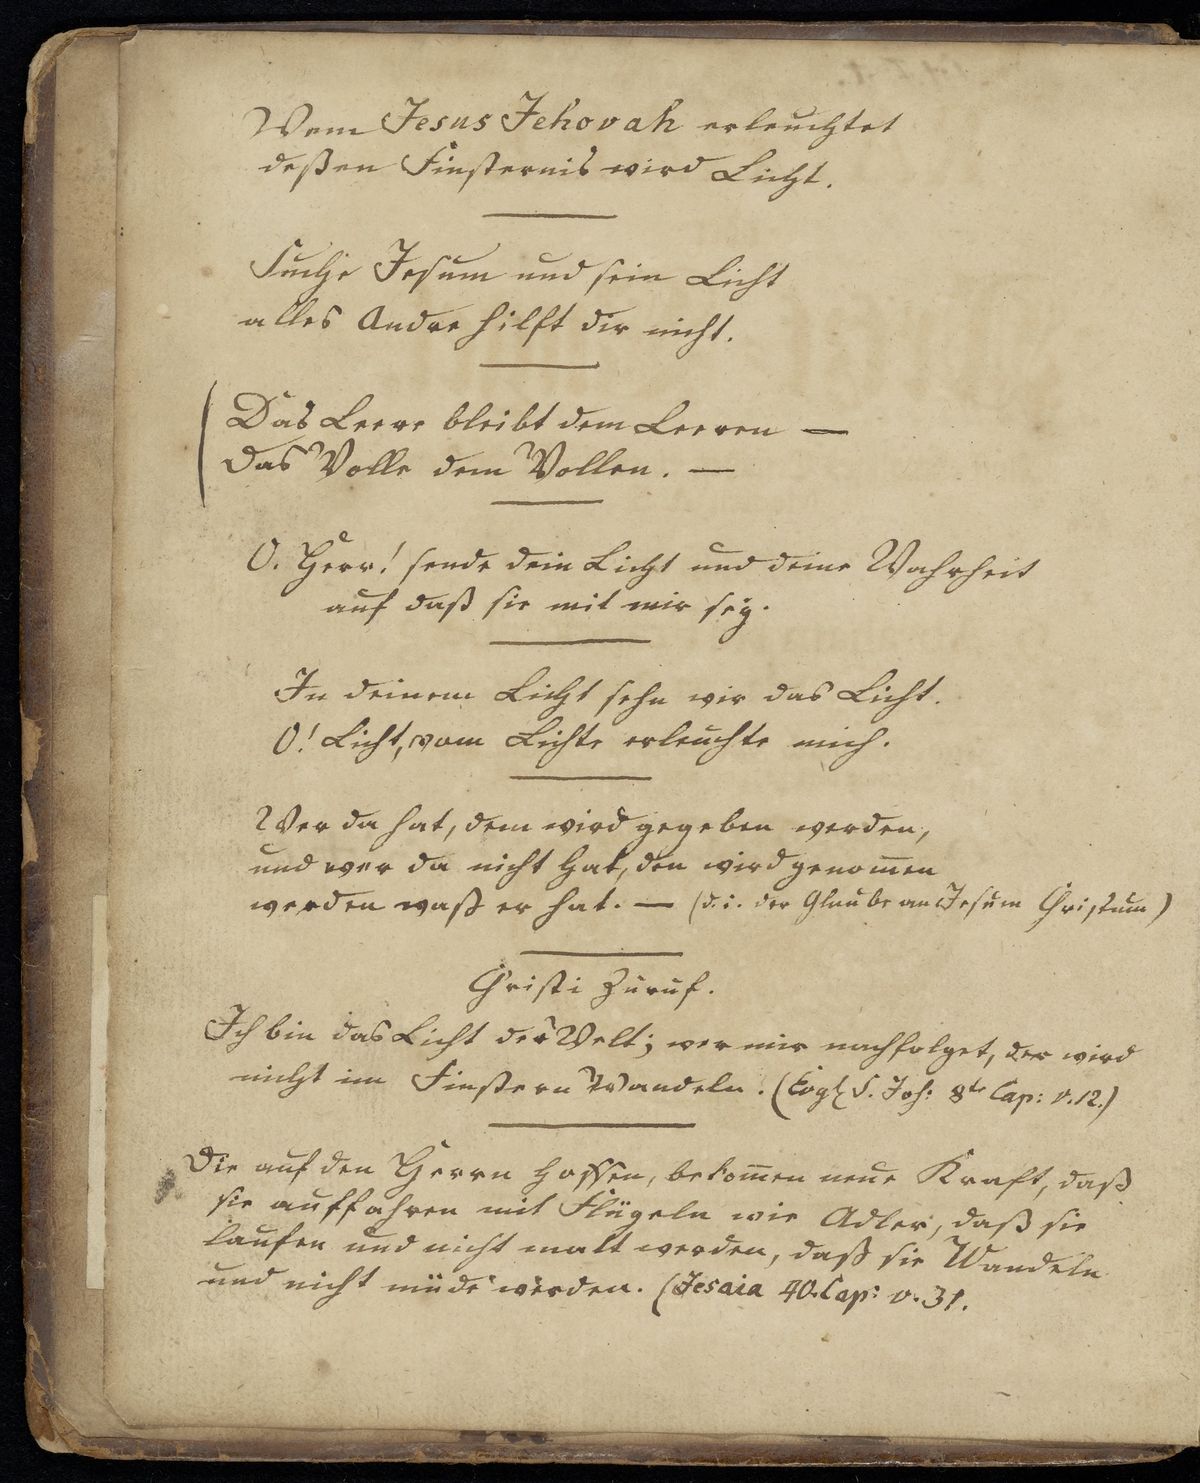 Wem Jesus Jehovah erleuchtet
deßen Finsternis wird Licht.
Suche Jesum und sein Licht
alles Andre hilft dir nicht.
Das Leere bleibt dem Leeren —
das Volle dem Vollen. —
O. Herr! sende dein Licht und deine Wahrheit
auf daß sie mit mir seÿ.
In deinem Licht sehn wir das Licht.
O! Licht, vom Lichte erleuchte mich.
Wer da hat, dem wird gegeben werden,
und wer da nicht hat, den wird genom̅en
werden waß er hat. — (d. i. der Glaube an Jesum Christum)
Christi Zuruf.
Ich bin das Licht der Welt; wer mir nachfolget, der wird
nicht im Finstern Wandeln. (Evgl S. Joh: 8te Cap: v. 12.)
Die auf den Herrn hoffen, bekom̅en neue Kraft, daß
sie auffahren mit Flügeln wie Adler, daß sie
laufen und nicht matt werden, daß sie Wandeln
und nicht müde werden. (Jesaia 40. Cap: v. 31.